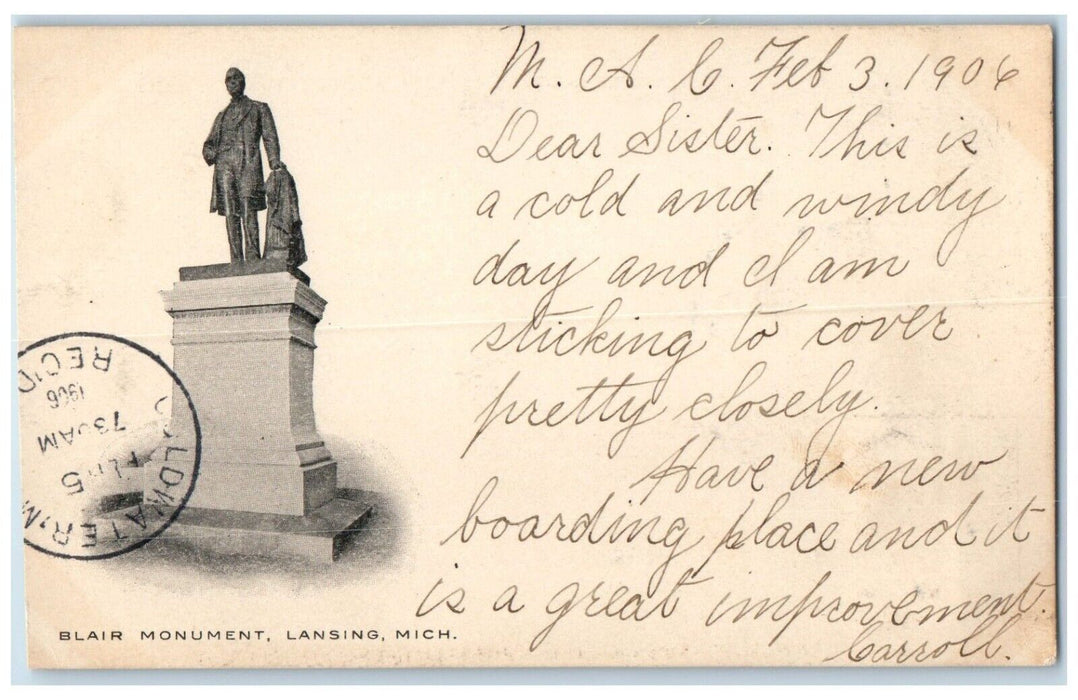 M. A. C. Feb 3. 1906
Dear Sister. This is
a cold and windy
day and I am
sticking to cover
pretty closely.
Have a new
boarding place and it
is a great improvement.
Carroll.
COLDWATER, M
5
730AM
1906
REC'D
BLAIR MONUMENT, LANSING, MICH.